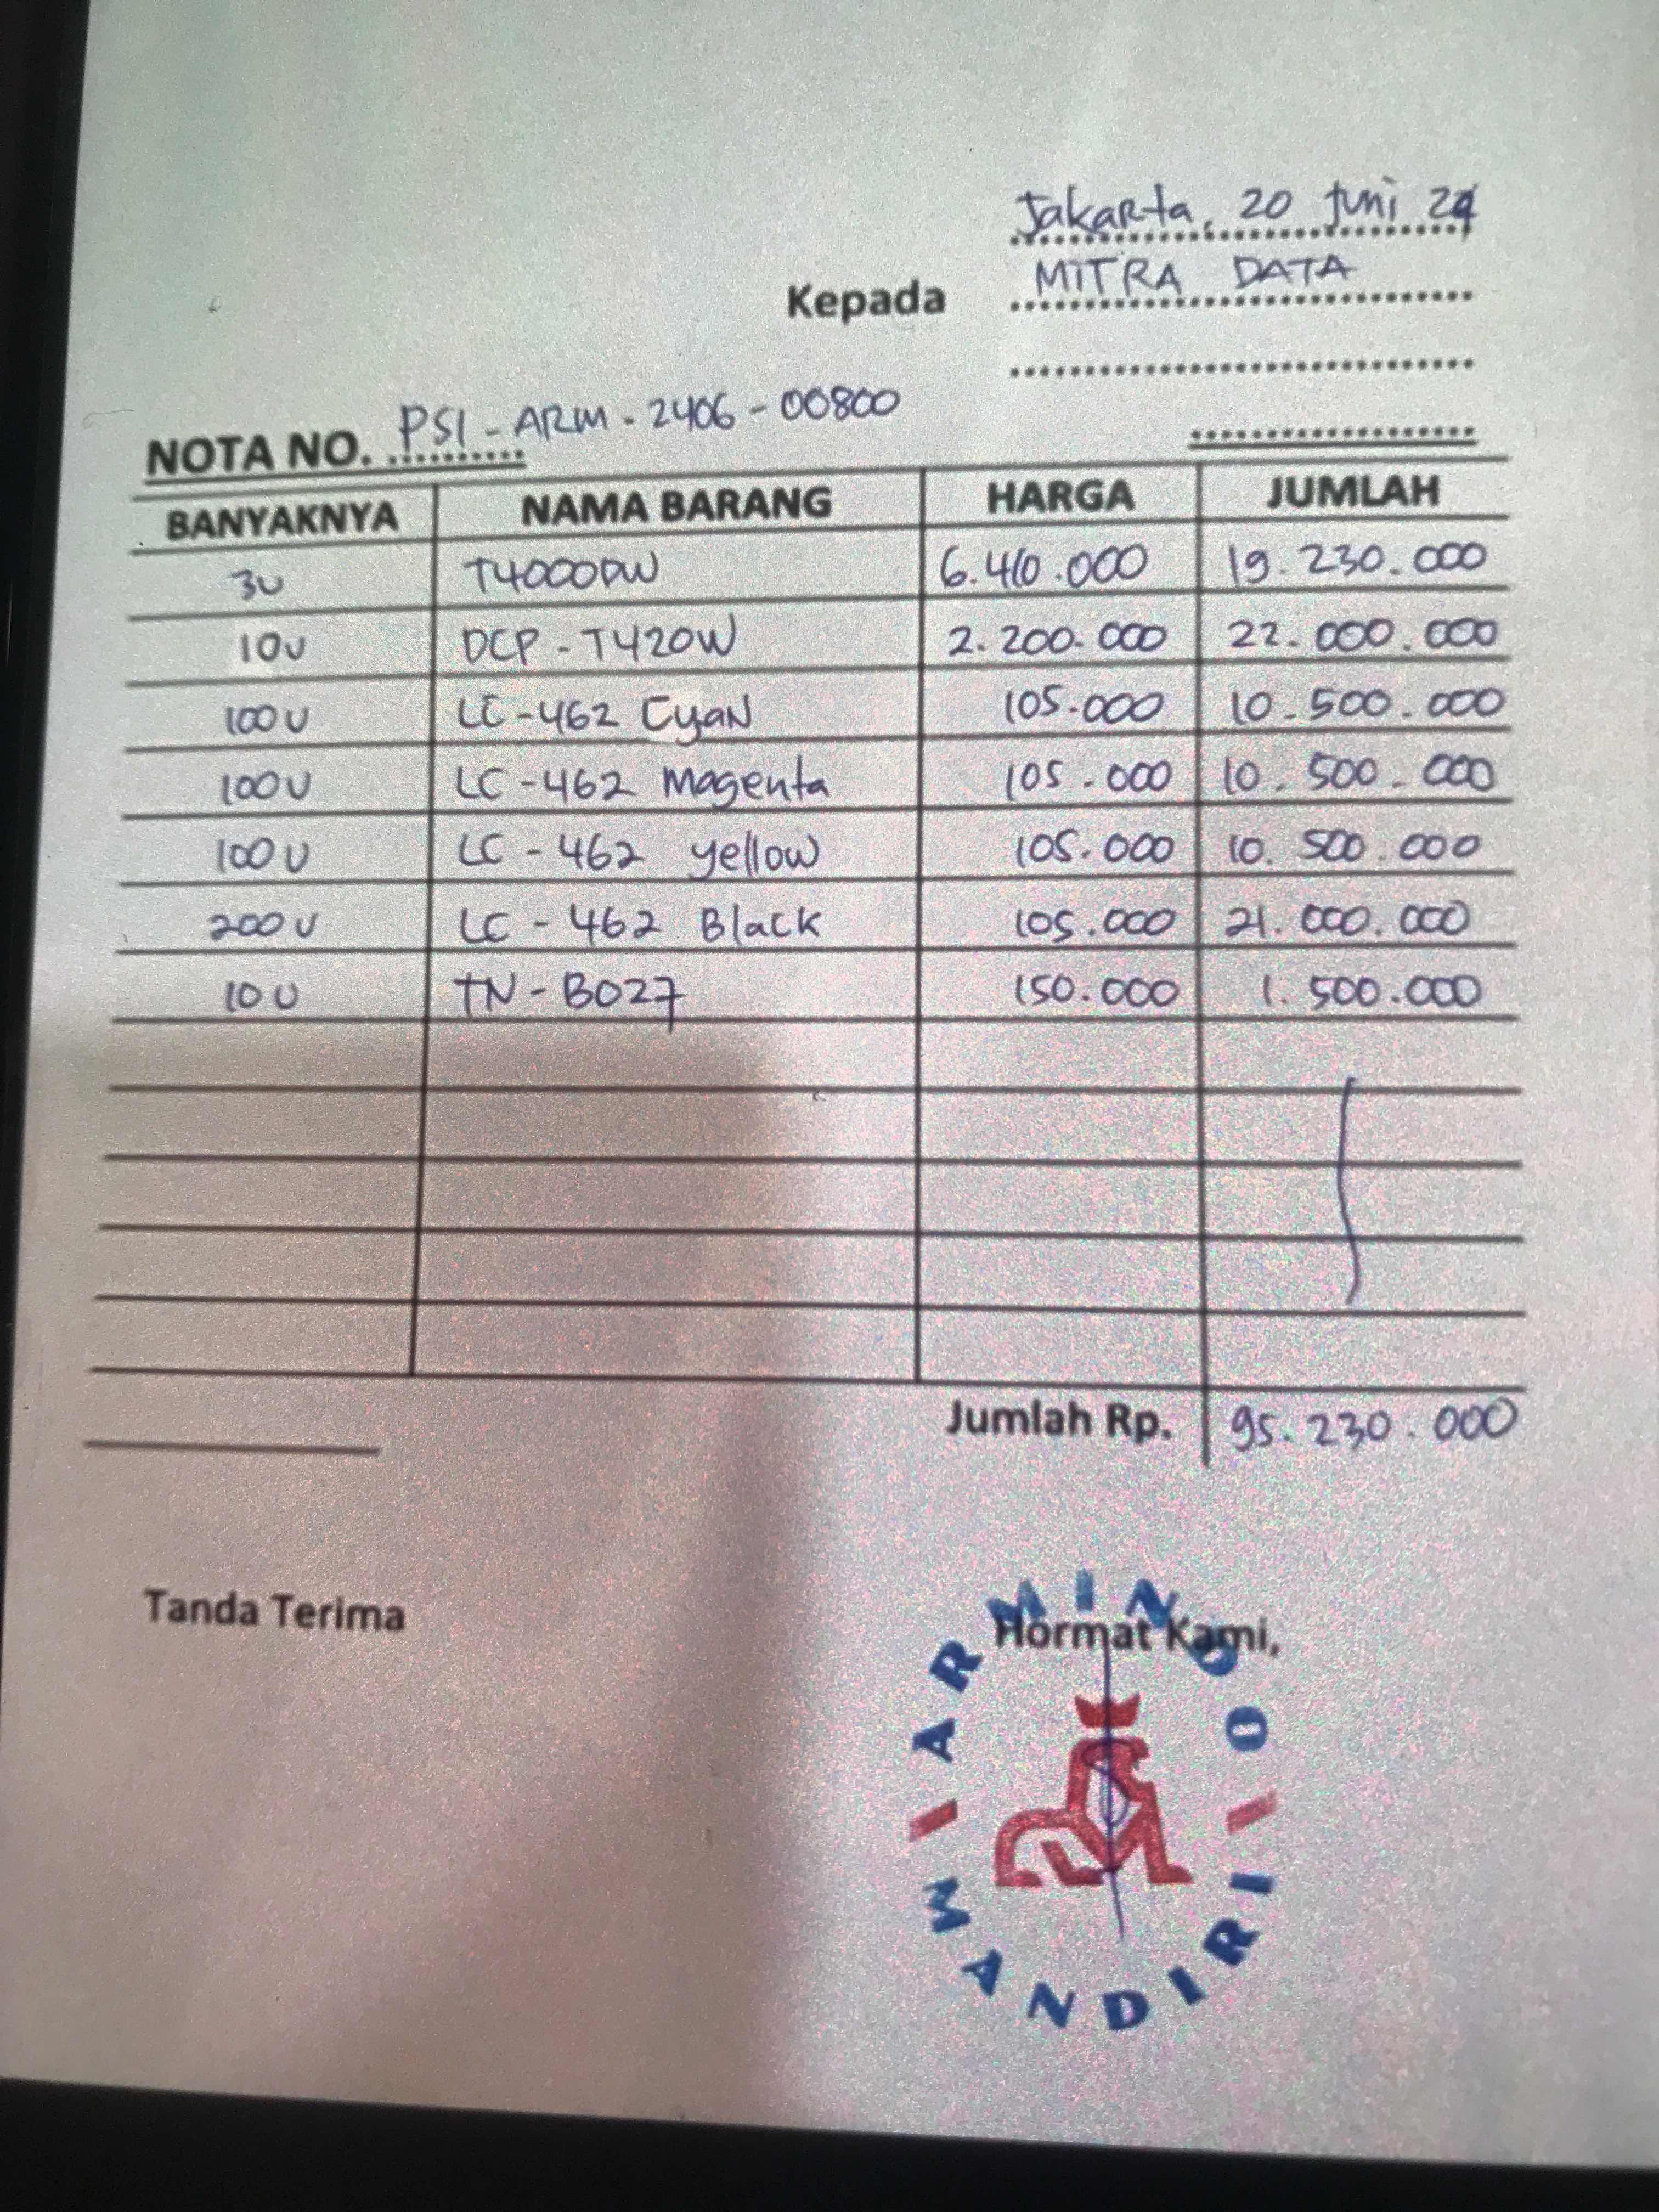 Jakarta, 20 Juni 24
Kepada MITRA DATA
NOTA NO. PSI - ARM - 2406 - 00800
BANYAKNYA NAMA BARANG HARGA JUMLAH
3U T4000DW 6.410.000 19.230.000
10U DCP - T420W 2.200.000 22.000.000
100U LC-462 Cyan 105.000 10.500.000
100U LC-462 Magenta 105.000 10.500.000
100U LC-462 yellow 105.000 10.500.000
200U LC-462 Black 105.000 21.000.000
10U TN-B027 150.000 1.500.000
Jumlah Rp. 95.230.000
Tanda Terima Hormat Kami,
ARMINDO
MANDIRI